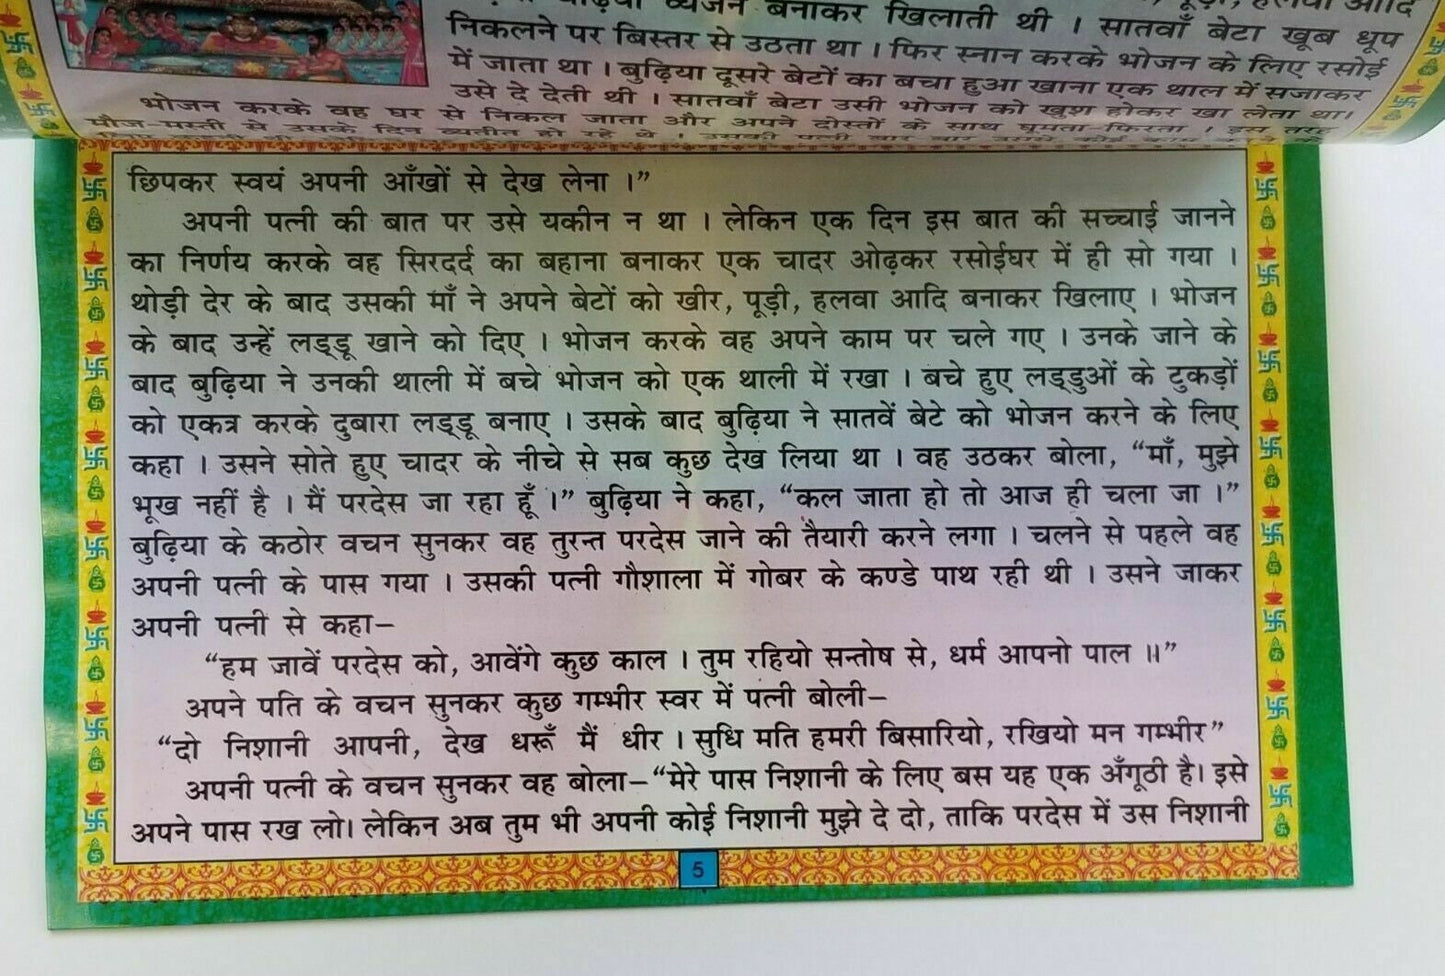 व्यंजन बनाकर खिलाती थी । सातवाँ बेटा खूब धूप
निकलने पर बिस्तर से उठता था । फिर स्नान करके भोजन के लिए रसोई
में जाता था । बुढ़िया दूसरे बेटों का बचा हुआ खाना एक थाल में सजाकर
उसे दे देती थी । सातवाँ बेटा उसी भोजन को खुश होकर खा लेता था।
भोजन करके वह घर से निकल जाता और अपने दोस्तों के साथ घूमता-फिरता । इस तरह
मौज-मस्ती से उसके दिन व्यतीत हो रहे थे ।
छिपकर स्वयं अपनी आँखों से देख लेना ।”
अपनी पत्नी की बात पर उसे यकीन न था । लेकिन एक दिन इस बात की सच्चाई जानने
का निर्णय करके वह सिरदर्द का बहाना बनाकर एक चादर ओढ़कर रसोईघर में ही सो गया ।
थोड़ी देर के बाद उसकी माँ ने अपने बेटों को खीर, पूड़ी, हलवा आदि बनाकर खिलाए । भोजन
के बाद उन्हें लड्डू खाने को दिए । भोजन करके वह अपने काम पर चले गए । उनके जाने के
बाद बुढ़िया ने उनकी थाली में बचे भोजन को एक थाली में रखा । बचे हुए लड्डुओं के टुकड़ों
को एकत्र करके दुबारा लड्डू बनाए । उसके बाद बुढ़िया ने सातवें बेटे को भोजन करने के लिए
कहा । उसने सोते हुए चादर के नीचे से सब कुछ देख लिया था । वह उठकर बोला, “माँ, मुझे
भूख नहीं है । मैं परदेस जा रहा हूँ ।” बुढ़िया ने कहा, “कल जाता हो तो आज ही चला जा ।”
बुढ़िया के कठोर वचन सुनकर वह तुरन्त परदेस जाने की तैयारी करने लगा । चलने से पहले वह
अपनी पत्नी के पास गया । उसकी पत्नी गौशाला में गोबर के कण्डे पाथ रही थी । उसने जाकर
अपनी पत्नी से कहा–
“हम जावें परदेस को, आवेंगे कुछ काल । तुम रहियो सन्तोष से, धर्म आपनो पाल ॥”
अपने पति के वचन सुनकर कुछ गम्भीर स्वर में पत्नी बोली–
“दो निशानी आपनी, देख धरूँ मैं धीर । सुधि मति हमरी बिसारियो, रखियो मन गम्भीर”
अपनी पत्नी के वचन सुनकर वह बोला–“मेरे पास निशानी के लिए बस यह एक अँगूठी है। इसे
अपने पास रख लो। लेकिन अब तुम भी अपनी कोई निशानी मुझे दे दो, ताकि परदेस में उस निशानी
5